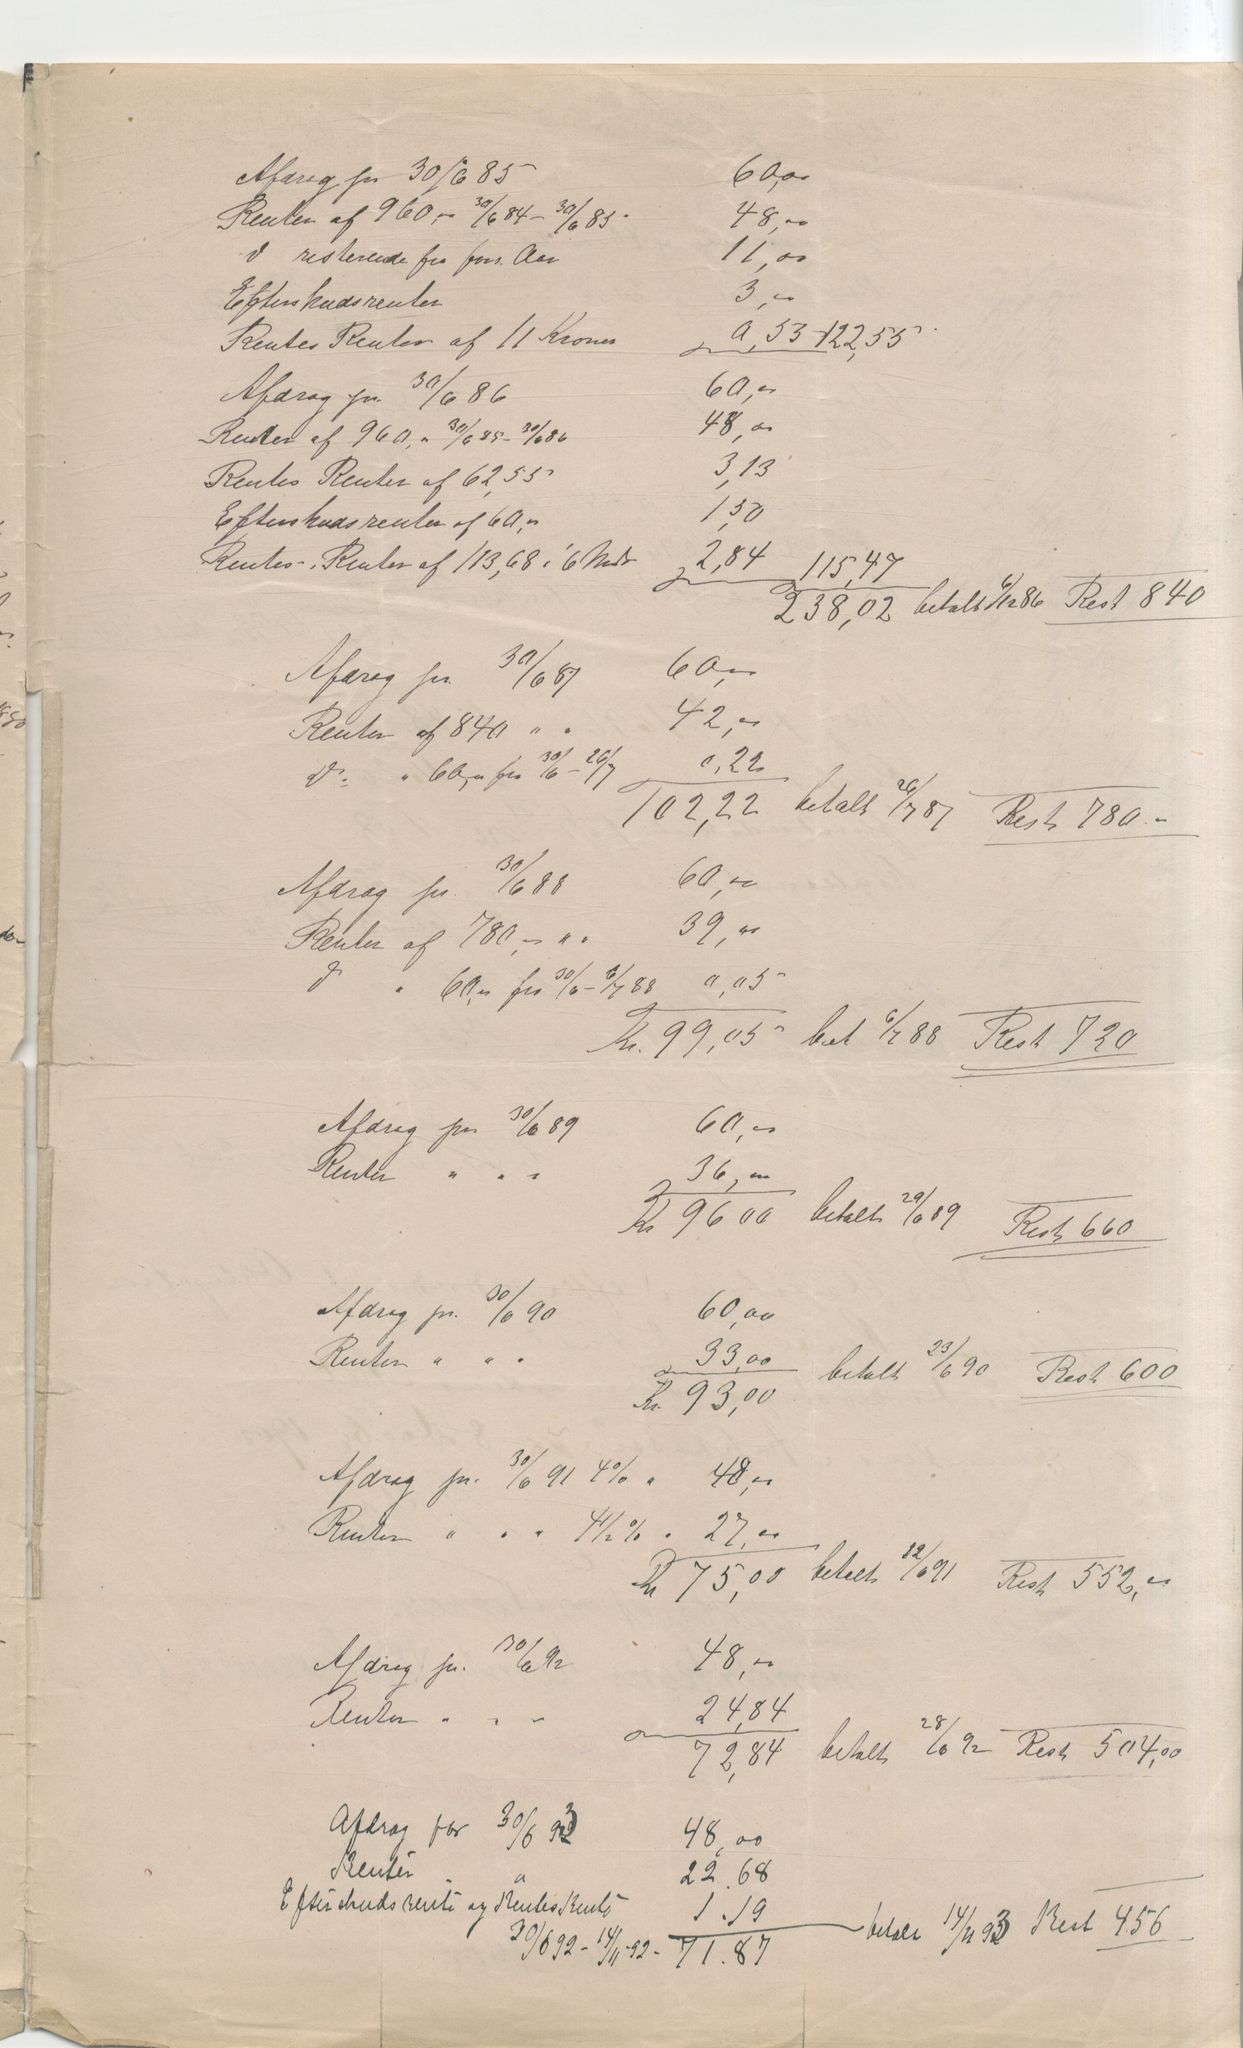 Afdrag pr 30/6 85 60,00
Renter af 960,00 30/6 84 - 30/6 85 48,00
do resterende fra forr. Aar 11,00
Efterskudsrenter 3,00
Rentes Renter af 11 Kroner 0,55 122,55
Afdrag pr. 30/6 86 60,00
Renter af 960,00 30/6 85 - 30/6 86 48,00
Rentes Renter af 62,55 3,13
Efterskudsrenter af 60,00 1,50
Rentes-Renter af 113,68 i 6 Mdr 2,84 115,47
238,02 betalt 6/12 86 Rest 840
Afdrag pr. 30/6 87 60,00
Renter af 840 " " 42,00
do " 60,00 fra 30/6 - 26/7 0,22
102,22 betalt 26/7 87 Rest 780.00
Afdrag pr. 30/6 88 60,00
Renter af 780,00 " " 39,00
do " 60,00 fra 30/6 - 6/7 88 0,05
Kr. 99,05 bet 6/7 88 Rest 720
Afdrag pr 30/6 89 60,00
Renter " " " 36,00
Kr 96 00 betalt 29/6 89 Rest 660
Afdrag pr. 30/6 90 60,00
Renter " " " 33,00
Kr. 93,00 betalt 23/6 90 Rest 600
Afdrag pr. 30/6 91 4% " 48,00
Renter " " " 4 1/2 % " 27,00
Kr 75,00 betalt 12/6 91 Rest 552,00
Afdrag pr. 30/6 92 48,00
Renter " " " 24,84
72,84 betalt 28/6 92 Rest 504,00
Afdrag for 30/6 93 48,00
Renter " " 22.68
Efterskudsrente og Rentes Rente 1.19
30/6 92 - 14/11 92 - 71.87 betalt 14/11 93 Rest 456